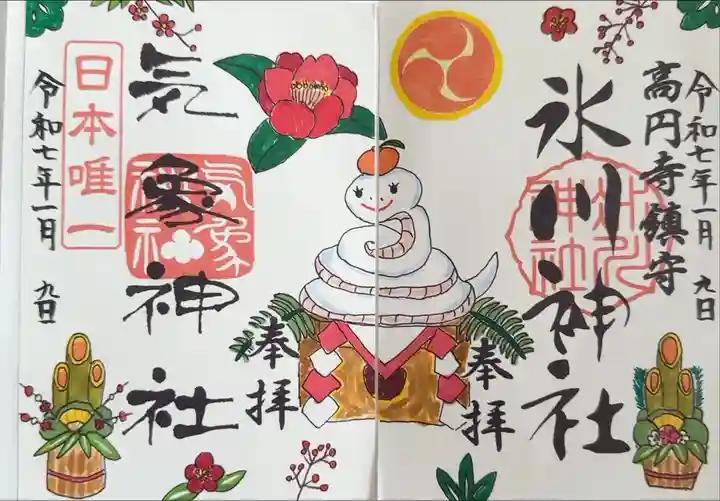 令和七年一月 九日
高円寺鎮守
氷川神社
奉拝
奉拝
気象神社
気象神社
日本唯一
令和七年一月 九日